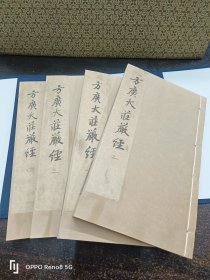 方廣大莊嚴經
方廣大莊嚴經二
方廣大莊嚴經
方廣大莊嚴經二
SHOT ON OPPO Reno8 5G